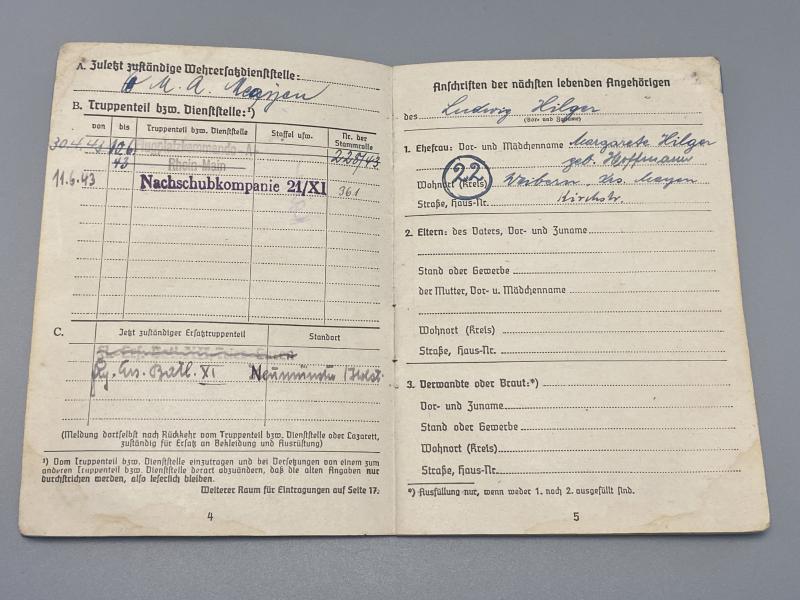 A. Zuletzt zuständige Wehrersatzdienststelle:
W. M. A. Mayen
B. Truppenteil bzw. Dienststelle:¹)
von bis Truppenteil bzw. Dienststelle Staffel usw. Nr. der Stammrolle
30.4.41 10.6. 43 Flugplatzkommando A Rhein-Main 228/43
11.6.43 Nachschubkompanie 21/XI 361
C. Jetzt zuständiger Ersatztruppenteil Standort
Ers. Batl. XI Neumünster /Holst.
(Meldung dortselbst nach Rückkehr vom Truppenteil bzw. Dienststelle oder Lazarett,
zuständig für Ersatz an Bekleidung und Ausrüstung)
¹) Vom Truppenteil bzw. Dienststelle einzutragen und bei Versetzungen von einem zum
anderen Truppenteil bzw. Dienststelle derart abzuändern, daß die alten Angaben nur
durchstrichen werden, also leserlich bleiben.
Weiterer Raum für Eintragungen auf Seite 17.
4
Anschriften der nächsten lebenden Angehörigen
des Ludwig Hilger
(Vor- und Zuname)
1. Ehefrau: Vor- und Mädchenname Margarete Hilger
geb. Hoffmann
22
Wohnort (Kreis) Weibern Krs. Mayen
Straße, Haus-Nr. Kirchstr.
2. Eltern: des Vaters, Vor- und Zuname
Stand oder Gewerbe
der Mutter, Vor- u. Mädchenname
Wohnort (Kreis)
Straße, Haus-Nr.
3. Verwandte oder Braut:*)
Vor- und Zuname
Stand oder Gewerbe
Wohnort (Kreis)
Straße, Haus-Nr.
*) Ausfüllung nur, wenn weder 1. noch 2. ausgefüllt sind.
5